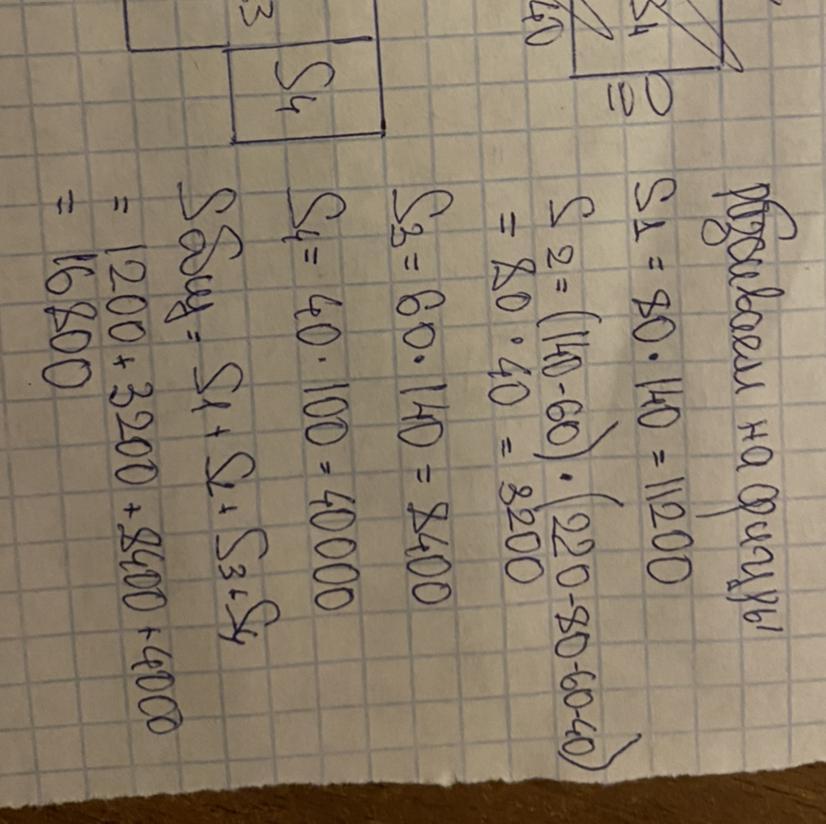 3
S4
40
S4
разбиваем на фигуры
S1 = 80 · 140 = 11200
S2 = (140-60) · (220-80-60-40)
= 80 · 40 = 3200
S3 = 60 · 140 = 8400
S4 = 40 · 100 = 40000
Sобщ = S1 + S2 + S3 + S4
= 1200 + 3200 + 8400 + 4000
= 16800